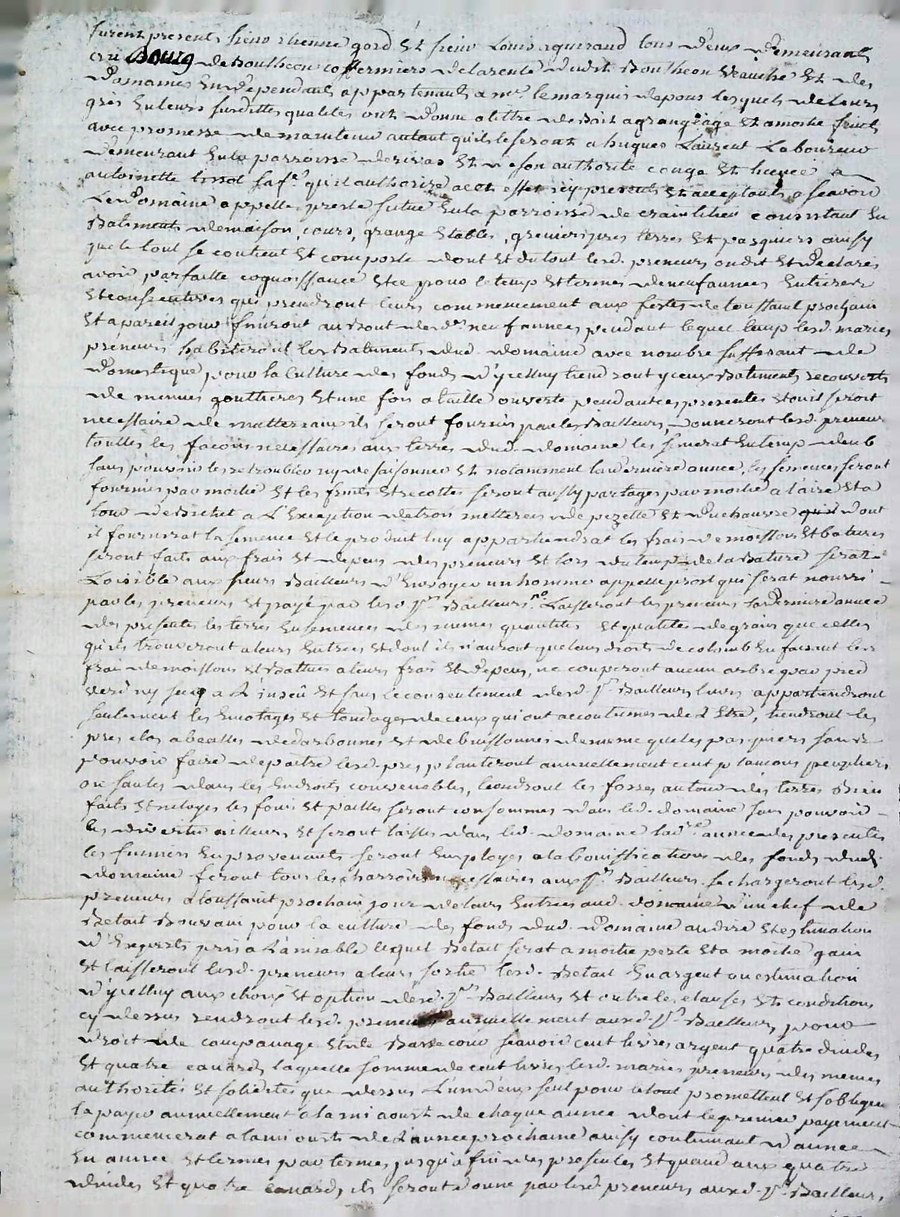 furent presents sieur etienne gord et sieur Louis aguirand tous deux demeurants
au Bourg de Boutheon cofermiers de la rente dudit Boutheon Veauche et des
Domaines en dependants appartenants a mr. le marquis de pons lesquels de leurs
grés en leurs susdittes qualités ont donné a titre de Bail a grangeage et a moitié fruits
avec promesse de maintenir autant qu'ils le seront a hugues Laurent Laboureur
demeurant en la parroisse de rivas et de son authorité congé et licence a
antoinette tissot sa fe. qu'il authorize a cet effet icy presents et acceptants, a scavoir
Le Domaine appellé situé en la parroisse de craintilieu consistant en
Batiments de maison, cours, grange etables, greniers, prés terres et pasquiers ainsy
que le tout se contient et comporte dont et du tout lesd. preneurs ont dit et declaré
avoir parfaitte cognoissance et ce pour le temps et termes de neuf années entieres
et consecutives qui prendront leurs commencement aux festes de toussaint prochain
et a pareil jour finiront au bout desd. neuf années pendant lequel temps lesd. mariés
preneurs habiteront les Batiments dud. domaine avec nombre suffisant de
Domestique pour la culture des fonds d'ycelluy tiendront yceux Batiments recouverts
de menues gouttieres et une fois a tuille ouverte pendant ces presentes et ou il seroit
necessaire de matteraux ils seront fournis par les Bailleurs, donneront lesd. preneurs
touttes les façons necessaires aux terres dud. domaine les semerat en temps deub
sans pouvoir les retroubler ny dessaisonner et notamment la derniere année, les semences seront
fournies par moitié et les fruits et recoltes seront aussy partagés par moitié a l'aire et a
tour de Bichet a L'Exception de trois metterées de pezette et de chausse dont
il fournirat la semence et le produit luy appartiendrat les frais de moissons et batures
seront faits aux frais et depens des preneurs et lors du temps de la Bature serat
Loisible aux sieurs Bailleurs d'Envoyer un homme appellé prost qui serat nourri
par les preneurs et payé par lesd. srs. Bailleurs Laisseront les preneurs la Derniere année
des presentes les terres ensemencées des memes quantités et qualités de grains que celles
qu'ils trouveront a leurs Entrées et dont ils n'auront que leurs droits de colomb en faisant les
frais de moissons et Battures a leurs frais et depens, ne couperont aucun arbre par pied
verd ny secq a L'insçu et sans le consentement desd. srs. Bailleurs leurs appartiendront
seulement les Emotages et tondages de ceux qui ont accoutumés de L'Etre, tiendront les
prés clos abealés de darbounes et de buissonnes de meme que les pasquiers sans
pouvoir faire depaitre lesd. prés, planteront annuellement cent plançons peupliers
ou saules dans les Endroits convenables, tiendront les fossés autour des terres Bien
faits et reloyés les foins et pailles seront consommés dans led. domaine sans pouvoir
les divertir ailleurs et seront laissés dans led. domaine la dre. année des presentes
les fumiers en provenants seront Employés a la bonnification des fonds dud.
Domaine feront tous les charrois necessaires aux srs. Bailleurs se chargeront lesd.
preneurs a toussaint prochain jour de leurs Entrées aud. domaine d'un chef de
Betail Bouvain pour la culture des fonds dud. Domaine au dire et estimation
d'Experts pris a L'amiable lequel Betail serat a moitié perte et a moitié gain
et laisseront lesd. preneurs a leurs sortie lesd. Betail en argent ou estimation
d'ycelluy aux choix et option desd. srs. Bailleurs et outre les clauses et conditions
cy dessus rendront lesd. preneurs annuellement auxd. srs. Bailleurs, pour
droit de companage et de Basse cour scavoir cent livres argent quatre dindes
et quatre canards laquelle somme de cent livres lesd. mariés preneurs des memes
authorité et solidité que dessus L'un d'eux seul pour le tout promettent et s'obligent
la payer annuellement a la mi aoust de chaque année dont le premier payement
commencerat a la mi aoust de L'année prochaine ainsy continuant d'année
en année et termes par termes jusqu'a fin des presentes et quand aux quatre
dindes et quatre canards ils seront donné par lesd. preneurs auxd. srs. Bailleurs,